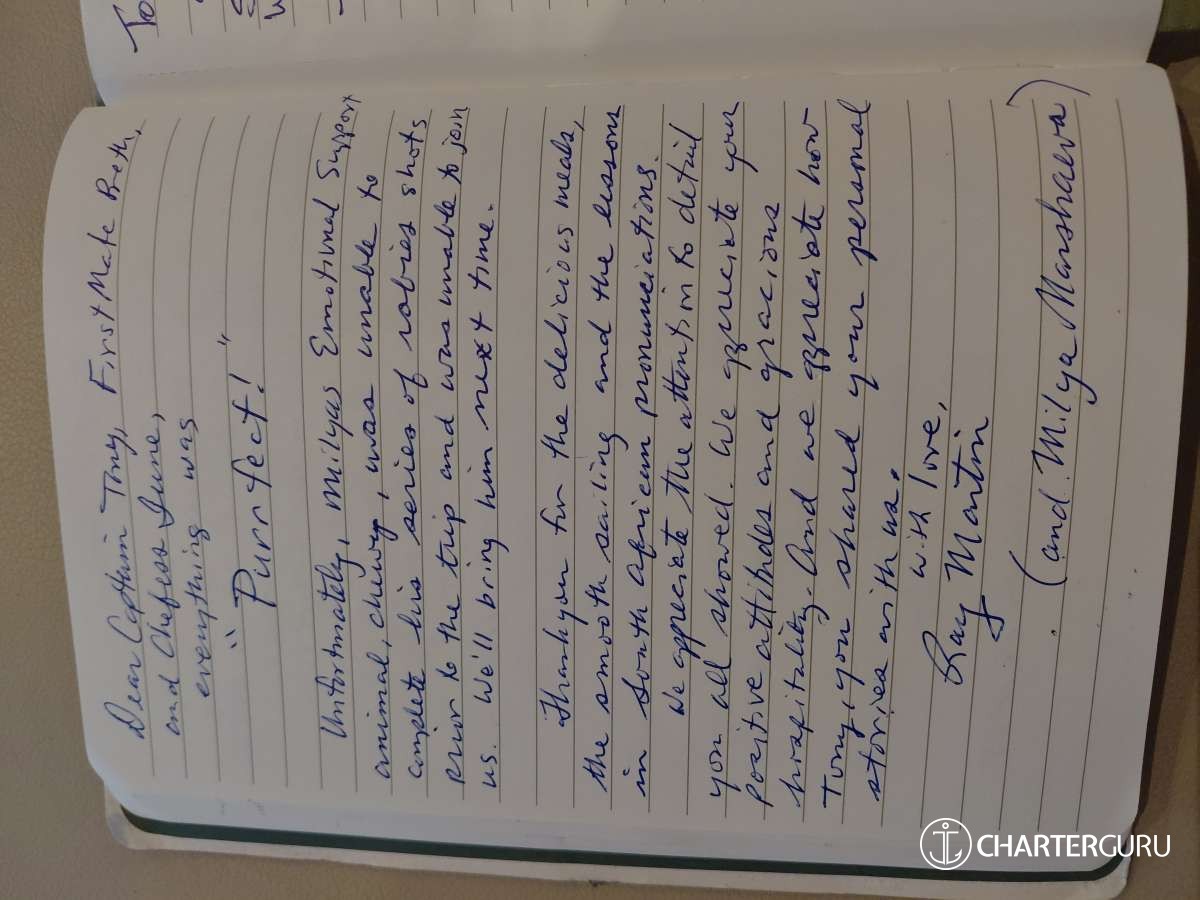 Dear Captain Tony, First Mate Beth,
and Chefess June,
everything was
"Purrfect!"
Unfortunately, Milyas Emotional Support
animal, chewy, was unable to
complete his series of rabies shots
prior to the trip and was unable to join
us. We'll bring him next time.
Thank you for the delicious meals,
the smooth sailing and the lessons
in South african pronunciations.
We appreciate the attention to detail
you all showed. We appreciate your
positive attitudes and gracious
hospitality. And we appreciate how
Tony, you shared your personal
stories with us.
with love,
Ray Martin
(and Milya Manshaeva)
To
CHARTERGURU